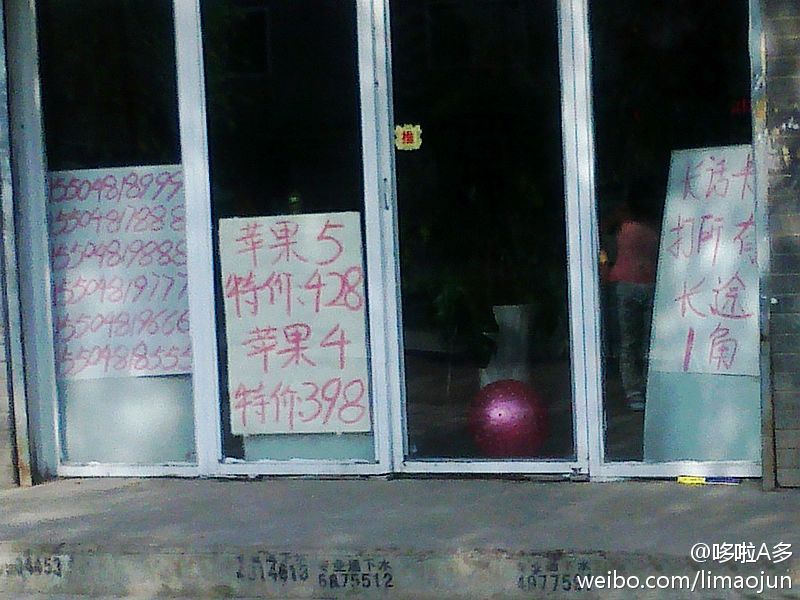 15504818999
15504817888
15504819888
15504819777
15504819666
15504818555
苹果5
特价:428
苹果4
特价:398
推
长话卡
打所有
长途
1角
专业通下水
6875512
@哆啦A多
weibo.com/limaojun